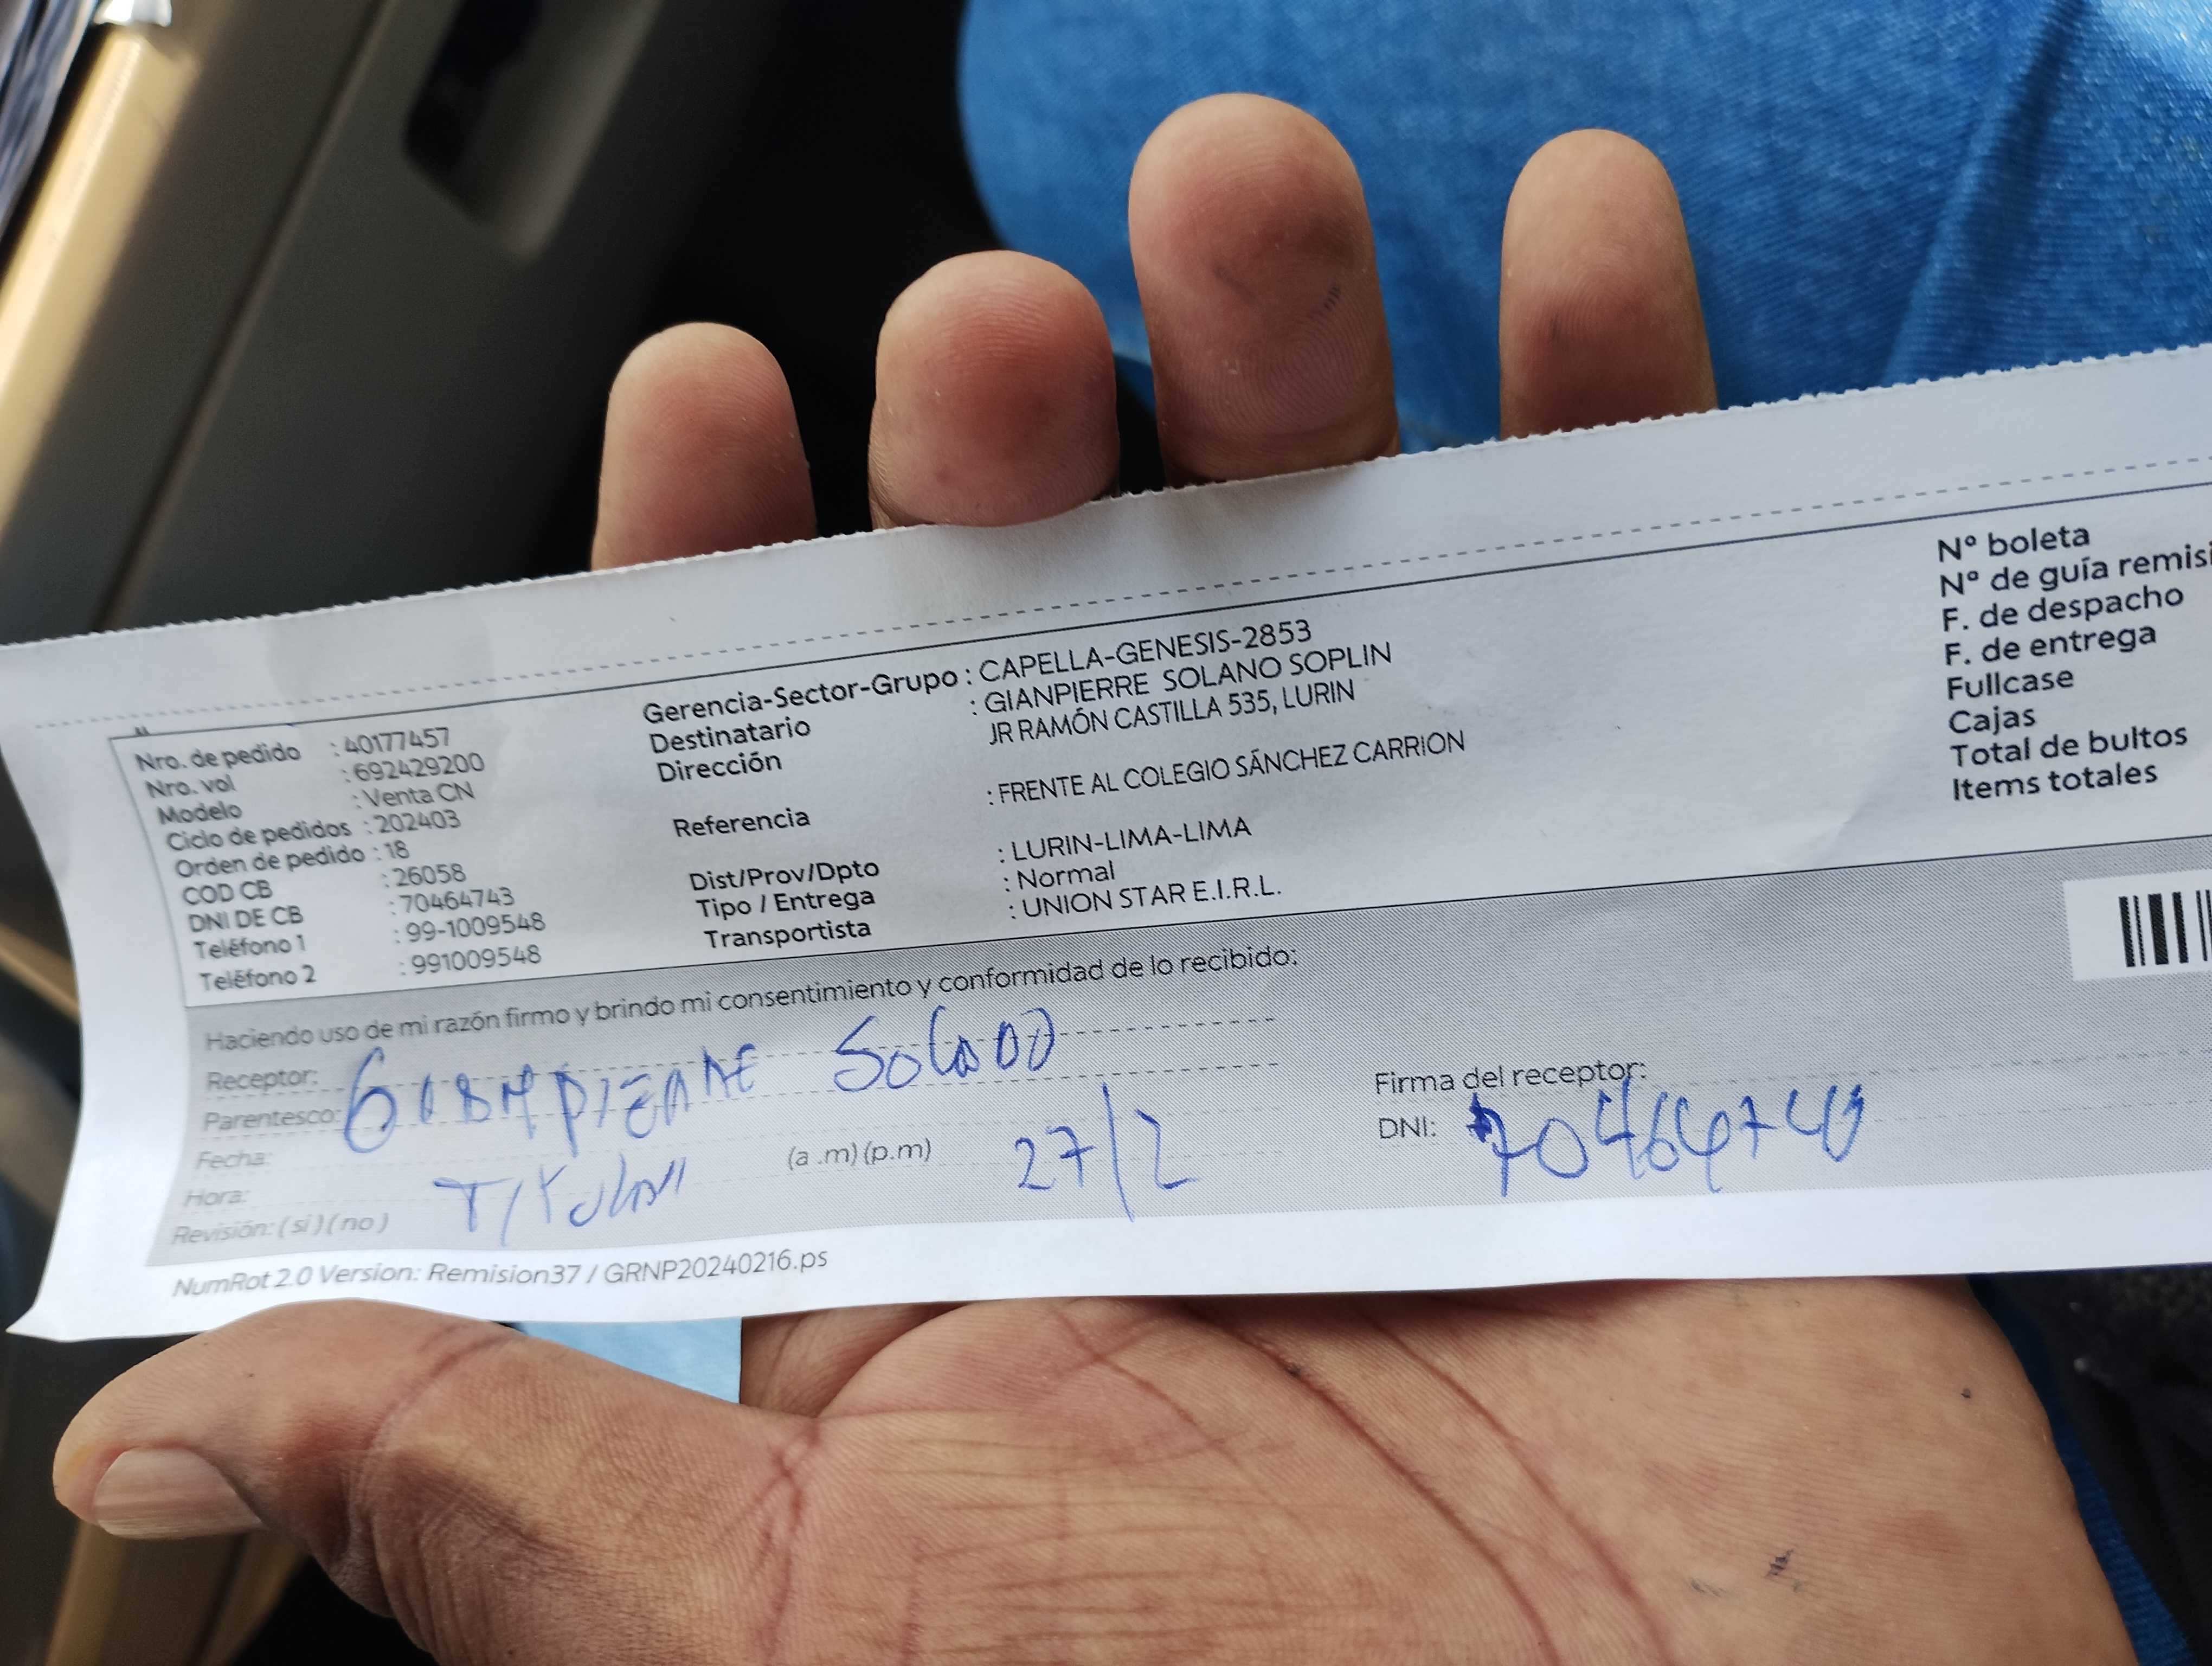 Nro. de pedido : 40177457
Nro. vol : 692429200
Modelo : Venta CN
Ciclo de pedidos : 202403
Orden de pedido : 18
COD CB : 26058
DNI DE CB : 70464743
Teléfono 1 : 99-1009548
Teléfono 2 : 991009548
Gerencia-Sector-Grupo : CAPELLA-GENESIS-2853
Destinatario : GIANPIERRE SOLANO SOPLIN
Dirección JR RAMÓN CASTILLA 535, LURIN
Referencia : FRENTE AL COLEGIO SÁNCHEZ CARRION
Dist/Prov/Dpto : LURIN-LIMA-LIMA
Tipo / Entrega : Normal
Transportista : UNION STAR E.I.R.L.
Nº boleta
Nº de guía remisi
F. de despacho
F. de entrega
Fullcase
Cajas
Total de bultos
Items totales
Haciendo uso de mi razón firmo y brindo mi consentimiento y conformidad de lo recibido:
Receptor: Solano
Parentesco:
Fecha:
Hora: (a .m) (p.m) 27/2
Revisión: ( si ) ( no )
Firma del receptor:
DNI:
NumRot 2.0 Version: Remision37 / GRNP20240216.ps